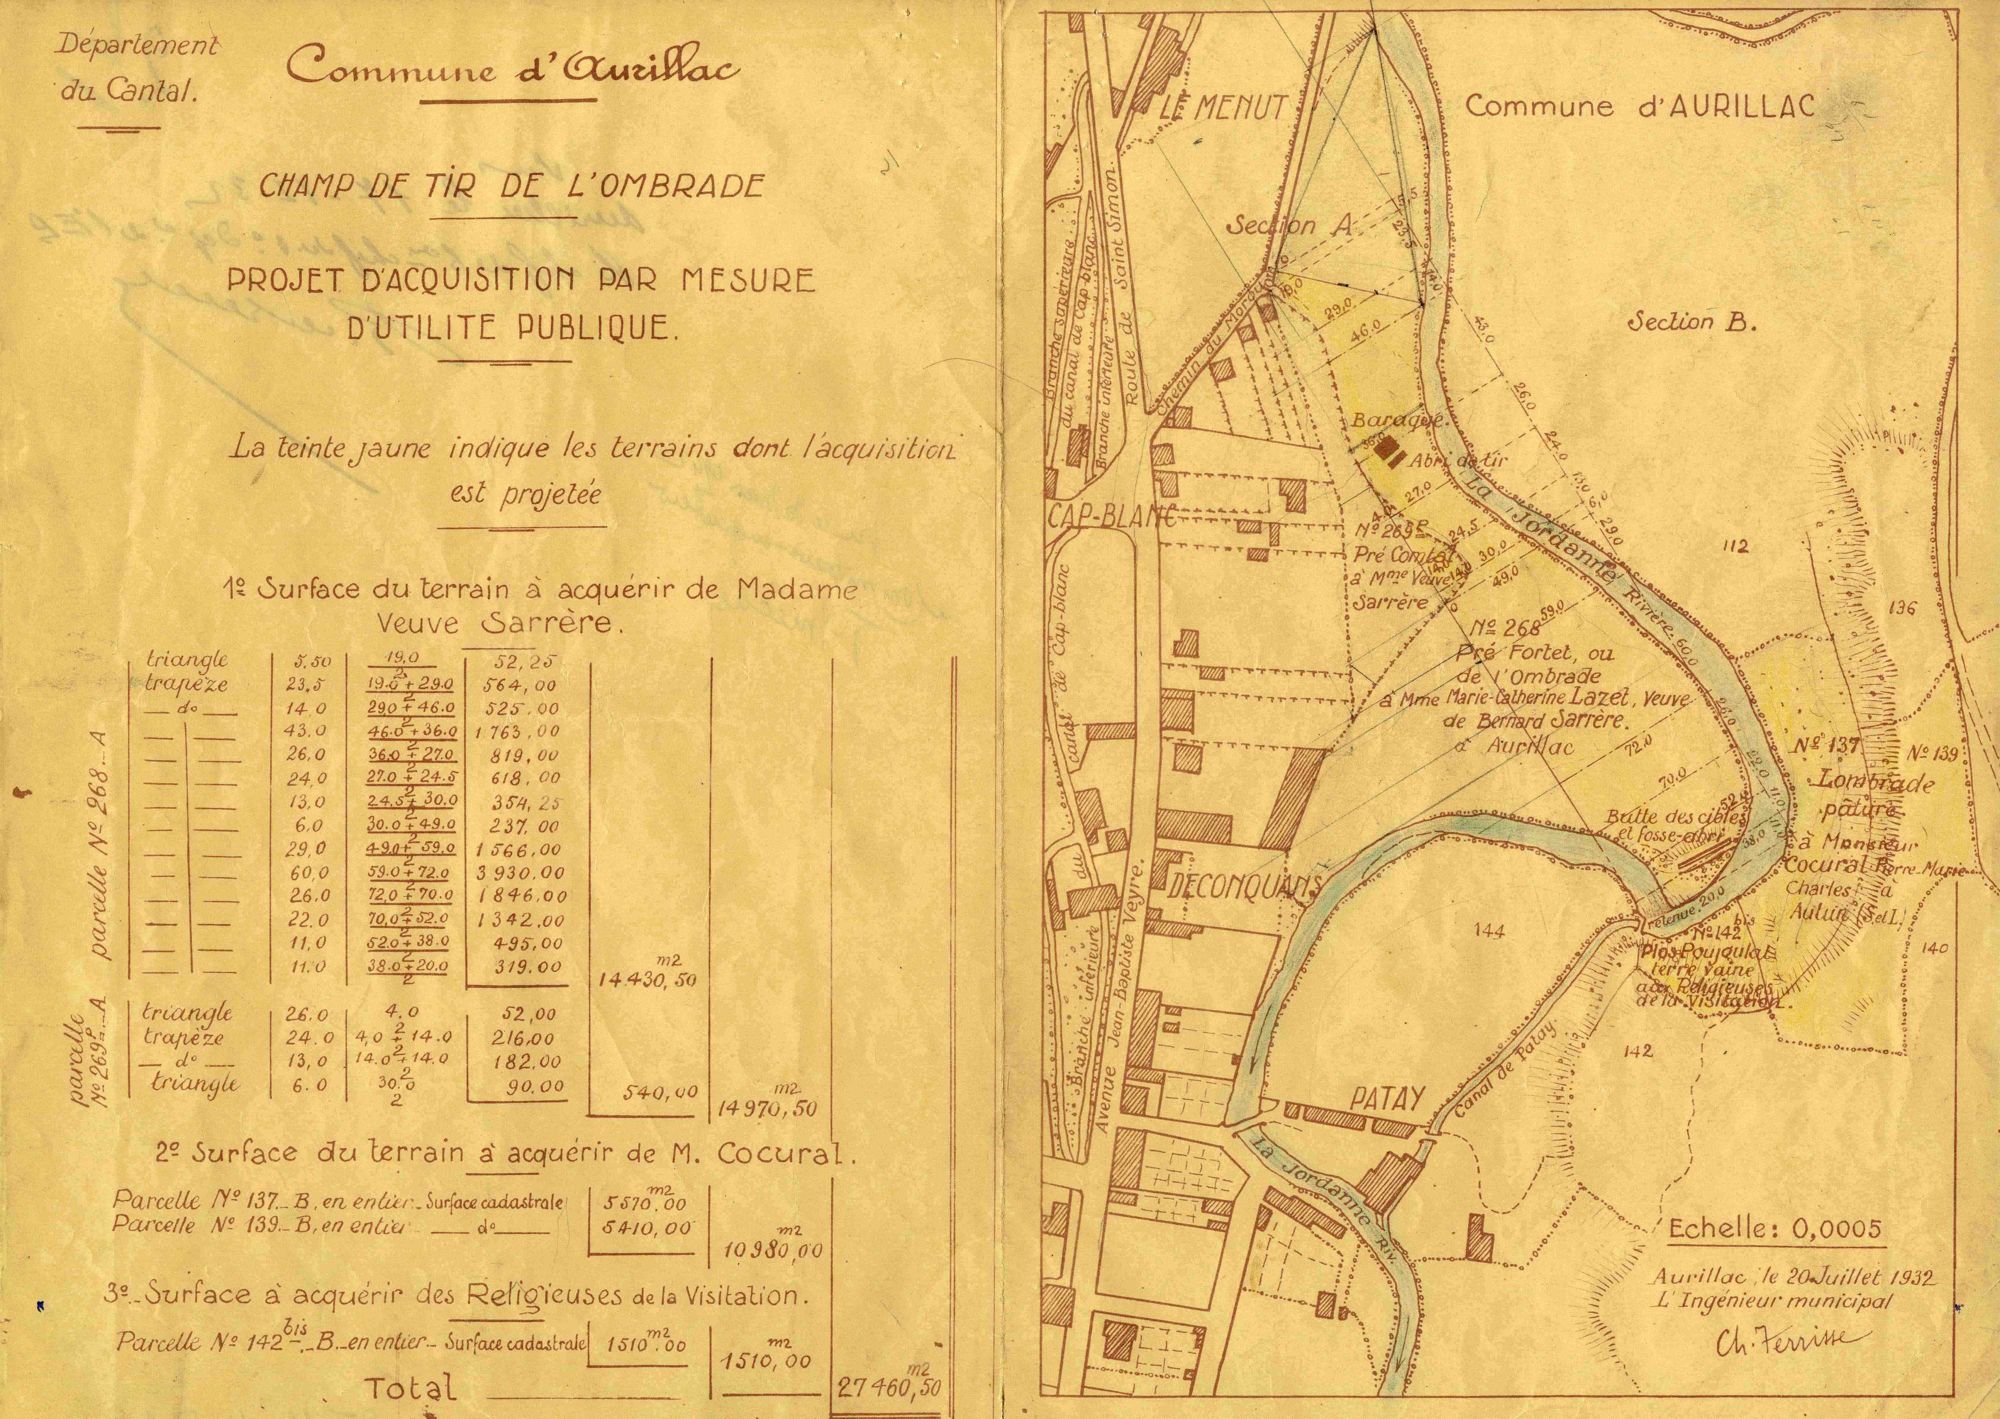 Département
du Cantal.
Commune d'Aurillac
CHAMP DE TIR DE L'OMBRADE
PROJET D'ACQUISITION PAR MESURE
D'UTILITE PUBLIQUE.
La teinte jaune indique les terrains dont l'acquisition
est projetée
1º Surface du terrain à acquérir de Madame
Veuve Sarrère.
parcelle Nº 268_A
triangle 5.50 19.0/2 52,25
trapèze 23.5 19.0+29.0/2 564,00
_ dº _ 14.0 29.0+46.0/2 525.00
43.0 46.0+36.0/2 1763,00
26.0 36.0+27.0/2 819,00
24.0 27.0+24.5/2 618,00
13.0 24.5+30.0/2 354,25
6.0 30.0+49.0/2 237,00
29,0 49.0+59.0/2 1566,00
60,0 59.0+72.0/2 3930.00
26.0 72.0+70.0/2 1846.00
22.0 70.0+52.0/2 1342,00
11,0 52.0+38.0/2 495,00
11.0 38.0+20.0/2 319.00
m2
14.430,50
parcelle
Nº 269P_A
triangle 26.0 4.0/2 52,00
trapèze 24.0 4,0+14.0/2 216,00
_ dº _ 13,0 14.0+14.0/2 182,00
triangle 6.0 30.0/2 90.00 540,00
m2
14970,50
2º Surface du terrain à acquérir de M. Cocural.
Parcelle Nº 137_B, en entier_Surface cadastrale 5570m2,00
Parcelle Nº 139_B, en entier ___ dº ___ 5410,00
m2
10980,00
3º_Surface à acquérir des Religieuses de la Visitation.
Parcelle Nº 142bis_B_en entier_Surface cadastrale 1510m2.00
m2
1510,00
Total m2 27460,50
LE MENUT
Commune d'AURILLAC
Section A
Section B.
Branche supérieure
du canal de Cap-blanc
Branche inférieure
Route de Saint Simon.
Chemin du
5.5
23.5
19,0
14,0
29,0
46.0
43,0
26,0
24,0
13,0
6,0
29,0
Baraque.
36.0
Abri de tir
27,0
4.0
24,5
30,0
49,0
14.0
14.0
59,0
La Jordanne Rivière
60,0
CAP-BLANC
Nº 269P
Pré Comtal
à Mme Veuve
Sarrère
Nº 268
Pré Fortet, ou
de l'Ombrade
à Mme Marie-Catherine Lazet, Veuve
de Bernard Sarrère.
à Aurillac
112
136
canal de Cap-blanc
26,0
72,0
70,0
22,0
52,0
11,0
11,0
38,0
Nº 137
Nº 139
Lombrade
pâture
à Monsieur
Cocural Pierre-Marie
Charles à
Autun (S.et L.)
Butte des cibles
et fosse-abri
retenue. 20,0
DECONQUANS
du
144
Nº 142 bis
Plos Poujoulat
terre vaine
aux Religieuses
de la Visitation.
140
Branche inférieure
Avenue Jean-Baptiste Veyre.
142
Canal de Patay.
PATAY
La Jordanne Riv.
Echelle: 0,0005
Aurillac, le 20 Juillet 1932
L'Ingénieur municipal
Ch. Terrisse